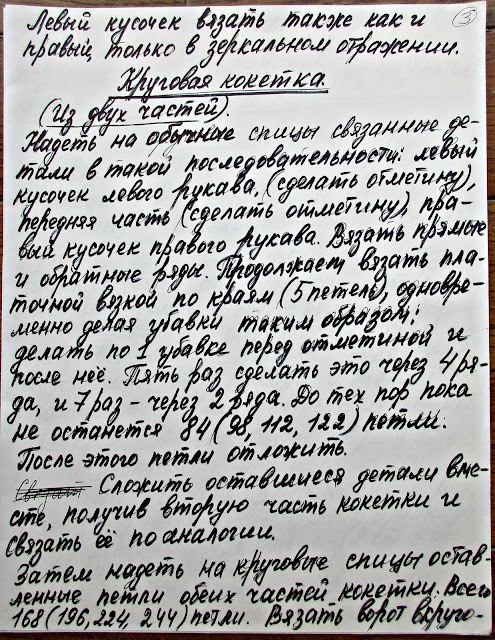 Левый кусочек вязать также как и
3
правый, только в зеркальном отражении.
Круговая кокетка.
(Из двух частей).
Надеть на обычные спицы связанные де-
тали в такой последовательности: левый
кусочек левого рукава, (сделать отметину),
передняя часть (сделать отметину), пра-
вый кусочек правого рукава. Вязать прямые
и обратные ряды. Продолжаем вязать пла-
точной вязкой по краям (5 петель), одновре-
менно делая убавки таким образом:
делать по 1 убавке перед отметиной и
после неё. Пять раз сделать это через 4 ря-
да, и 7 раз - через 2 ряда. До тех пор пока
не останется 84 (98, 112, 122) петли.
После этого петли отложить.
Сложить оставшиеся детали вме-
сте, получив вторую часть кокетки и
связать её по аналогии.
Затем надеть на круговые спицы остав-
ленные петли обеих частей кокетки. Всего
168 (196, 224, 244) петли. Вязать ворот вкруго-